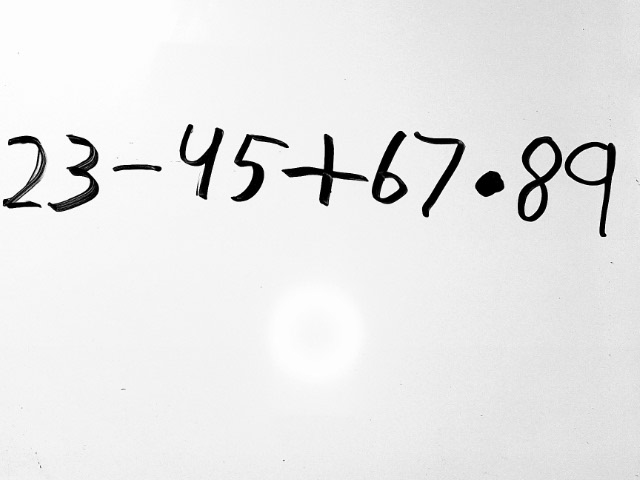 23-45+67•89